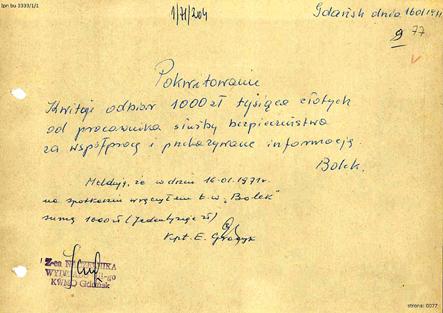 Ipn bu 3333/1/1
1/71/204
Gdańsk dnia 16.01.1971
9 77
Pokwitowanie
Kwituję odbiór 1000 zł tysiąca złotych
od pracownika służby bezpieczeństwa
za współpracę i przekazywane informacje.
Bolek.
Melduję, że w dniu 16.01.1971 r.
na spotkaniu wręczyłem t.w. „Bolek”
sumę 1000 zł (jeden tysiąc zł)
Kpt. E. Graczyk
Z-ca NACZELNIKA
KWMO Gdańsk
strona: 0077